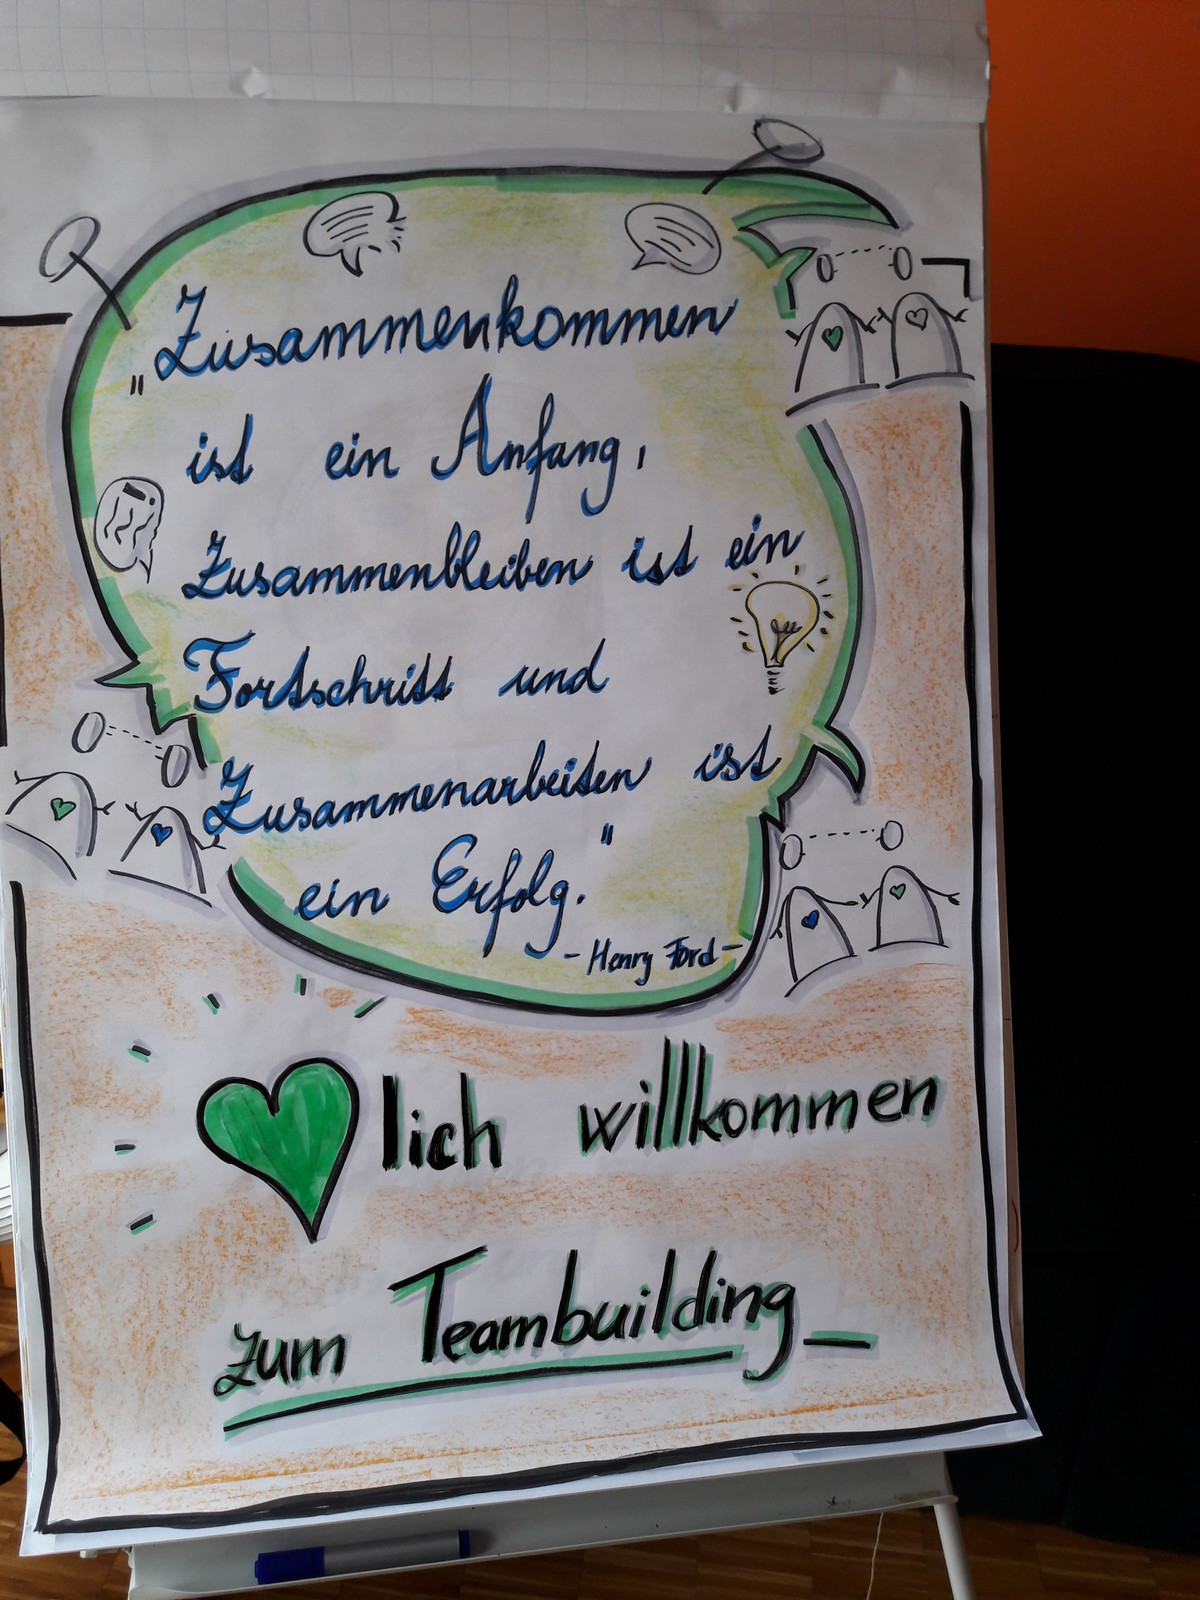 „Zusammenkommen
ist ein Anfang,
Zusammenbleiben ist ein
Fortschritt und
Zusammenarbeiten ist
ein Erfolg."
- Henry Ford -
lich willkommen
zum Teambuilding_